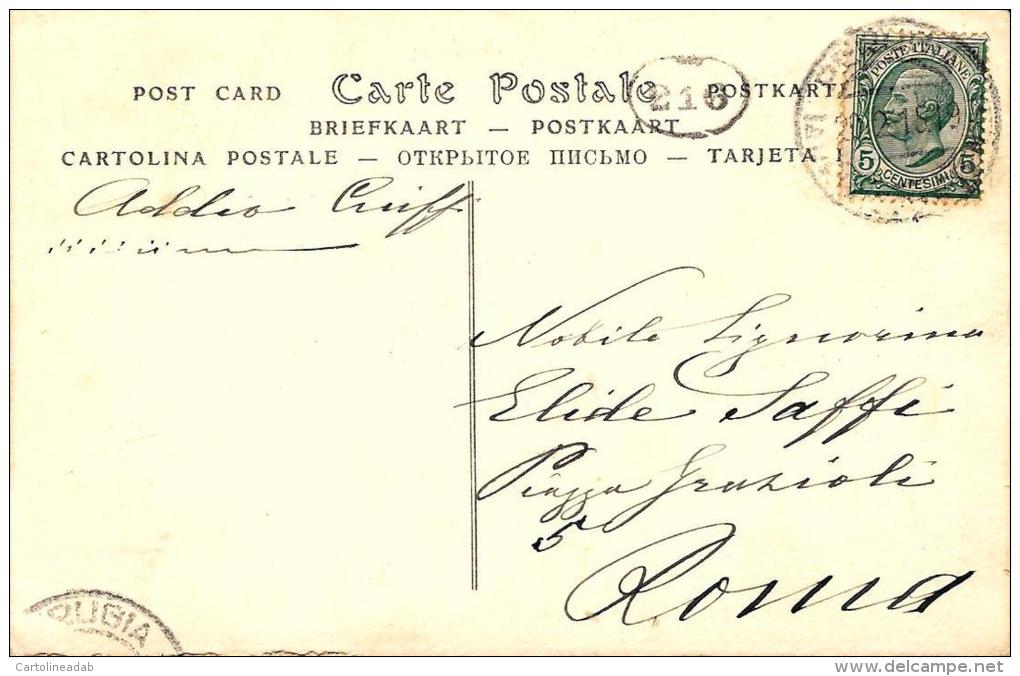 POST CARD Carte Postale POSTKARTE
216
BRIEFKAART — POSTKAART
CARTOLINA POSTALE — ОТКРЫТОЕ ПИСЬМО — TARJETA
POSTE ITALIANE
5 CENTESIMI 5
Addio
Nobile Signorina
Elide Saffi
Piazza Grazioli
5
Roma
RUGIA
Cartolineadab
delcampe.net